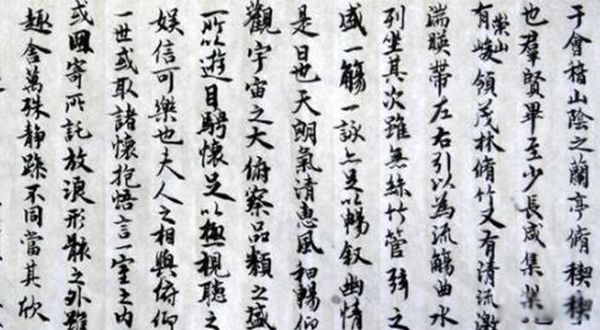 于會稽山陰之蘭亭脩稧稧
也羣賢畢至少長咸集
有崇山峻領茂林脩竹又有清流激
湍暎帶左右引以為流觴曲水
列坐其次雖無絲竹管弦之
盛一觴一詠亦足以暢叙幽情
是日也天朗氣清惠風和暢仰
觀宇宙之大俯察品類之盛
所以遊目騁懷足以極視聽之
娛信可樂也夫人之相與俯仰
一世或取諸懷抱悟言一室之內
或因寄所託放浪形骸之外雖
趣舍萬殊静躁不同當其欣